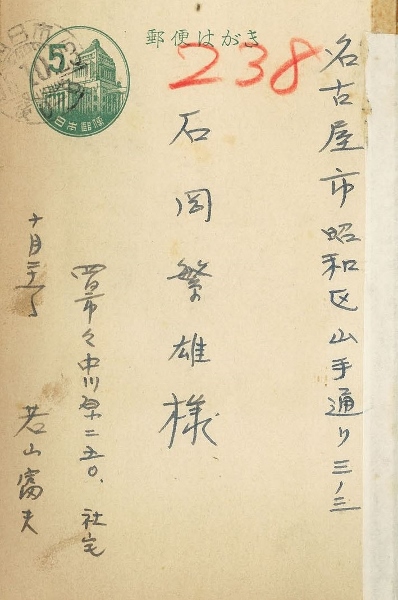 郵便はがき
5
日本郵便
238
名古屋市昭和区山手通リ三ノ三
石岡繁雄様
四日市々中川原二五〇、社宅
若山富夫
十月三